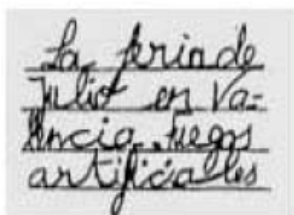 La feria de
Julio en Va-
lencia, fuegos
artificiales